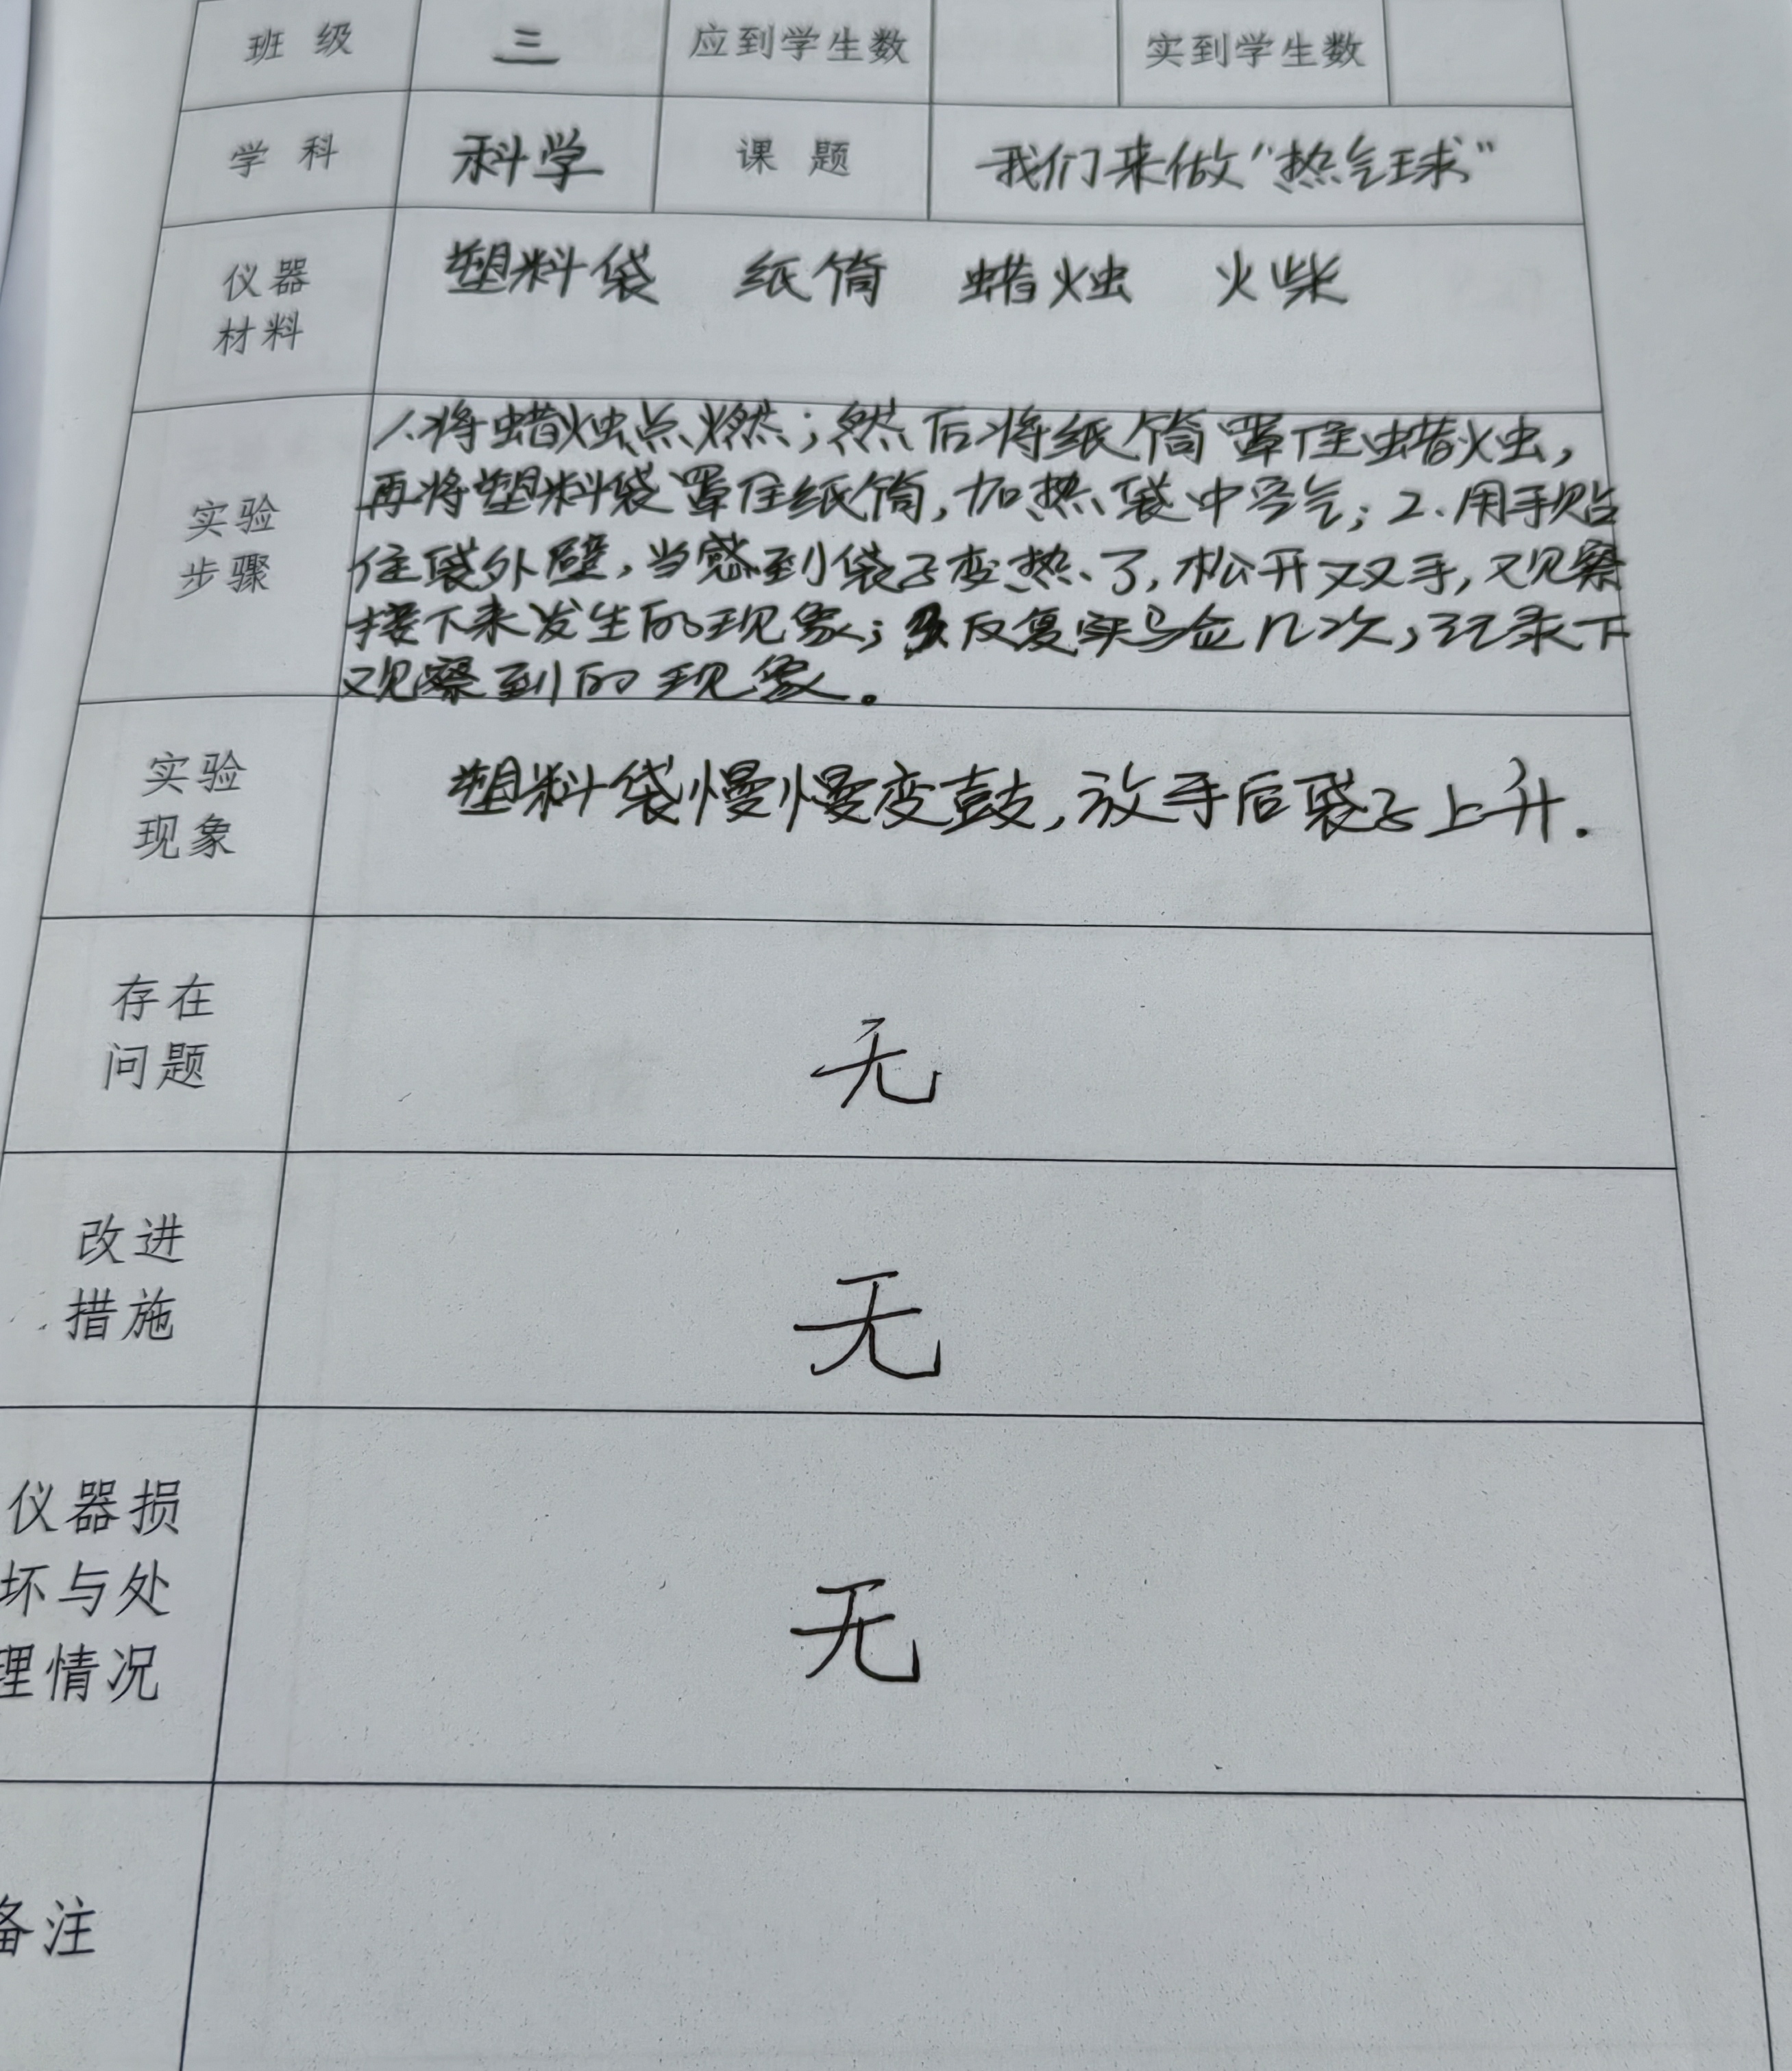 班 级 三 应到学生数 实到学生数
学 科 科学 课 题 我们来做“热气球”
仪器
材料
塑料袋 纸筒 蜡烛 火柴
实验
步骤
1.将蜡烛点燃；然后将纸筒罩住蜡烛，
再将塑料袋罩住纸筒，加热袋中空气；2.用手贴
住袋外壁，当感到袋子变热了，松开双手，观察
接下来发生的现象；3.反复实验几次，记录下
观察到的现象。
实验
现象
塑料袋慢慢变鼓，放手后袋子上升.
存在
问题
无
改进
措施
无
仪器损
坏与处
理情况
无
备注